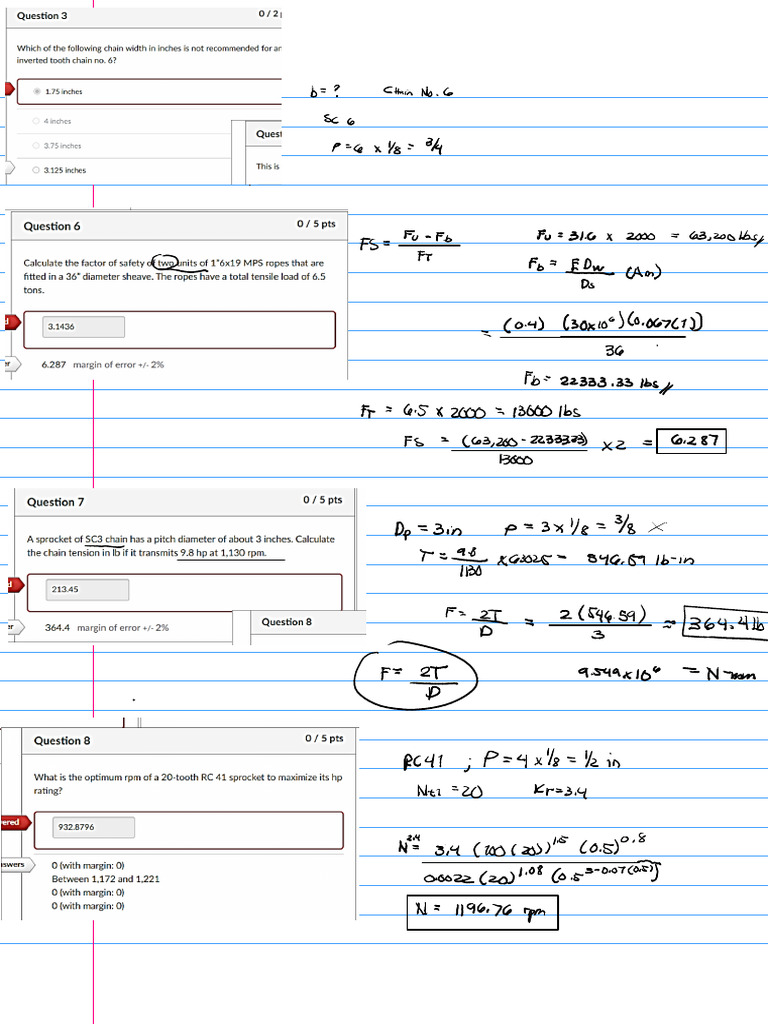 Question 3
0 / 2
Which of the following chain width in inches is not recommended for an
inverted tooth chain no. 6?
1.75 inches
4 inches
3.75 inches
3.125 inches
Quest
This is
b = ? Chain No. 6
SC 6
P = 6 x 1/8 = 3/4
Question 6
0 / 5 pts
Calculate the factor of safety of two units of 1"6x19 MPS ropes that are
fitted in a 36" diameter sheave. The ropes have a total tensile load of 6.5
tons.
3.1436
6.287 margin of error +/- 2%
FS = Fu - Fb / FT
Fu = 31.6 x 2000 = 63,200 lbs//
Fb = E Dw / Ds (Am)
= (0.4) (30x10^6)(0.067(1)) / 36
Fb = 22333.33 lbs//
FT = 6.5 x 2000 = 13000 lbs
FS = (63,200 - 22333.33) / 13000 x 2 = 6.287
Question 7
0 / 5 pts
A sprocket of SC3 chain has a pitch diameter of about 3 inches. Calculate
the chain tension in lb if it transmits 9.8 hp at 1,130 rpm.
213.45
364.4 margin of error +/- 2%
Question 8
Dp = 3in P = 3 x 1/8 = 3/8
T = 9.8 / 1130 x 63025 = 546.59 lb-in
F = 2T / D = 2 (546.59) / 3 ≈ 364.4 lb
F = 2T / D
9.549x10^6 = N-mm
Question 8
0 / 5 pts
What is the optimum rpm of a 20-tooth RC 41 sprocket to maximize its hp
rating?
ered
932.8796
swers
0 (with margin: 0)
Between 1,172 and 1,221
0 (with margin: 0)
0 (with margin: 0)
RC41 ; P = 4 x 1/8 = 1/2 in
Nt1 = 20 Kr = 3.4
N^2.4 = 3.4 (100 (20))^1.5 (0.5)^0.8 / 0.0022 (20)^1.08 (0.5^3-0.07(0.5))
N = 1196.76 rpm